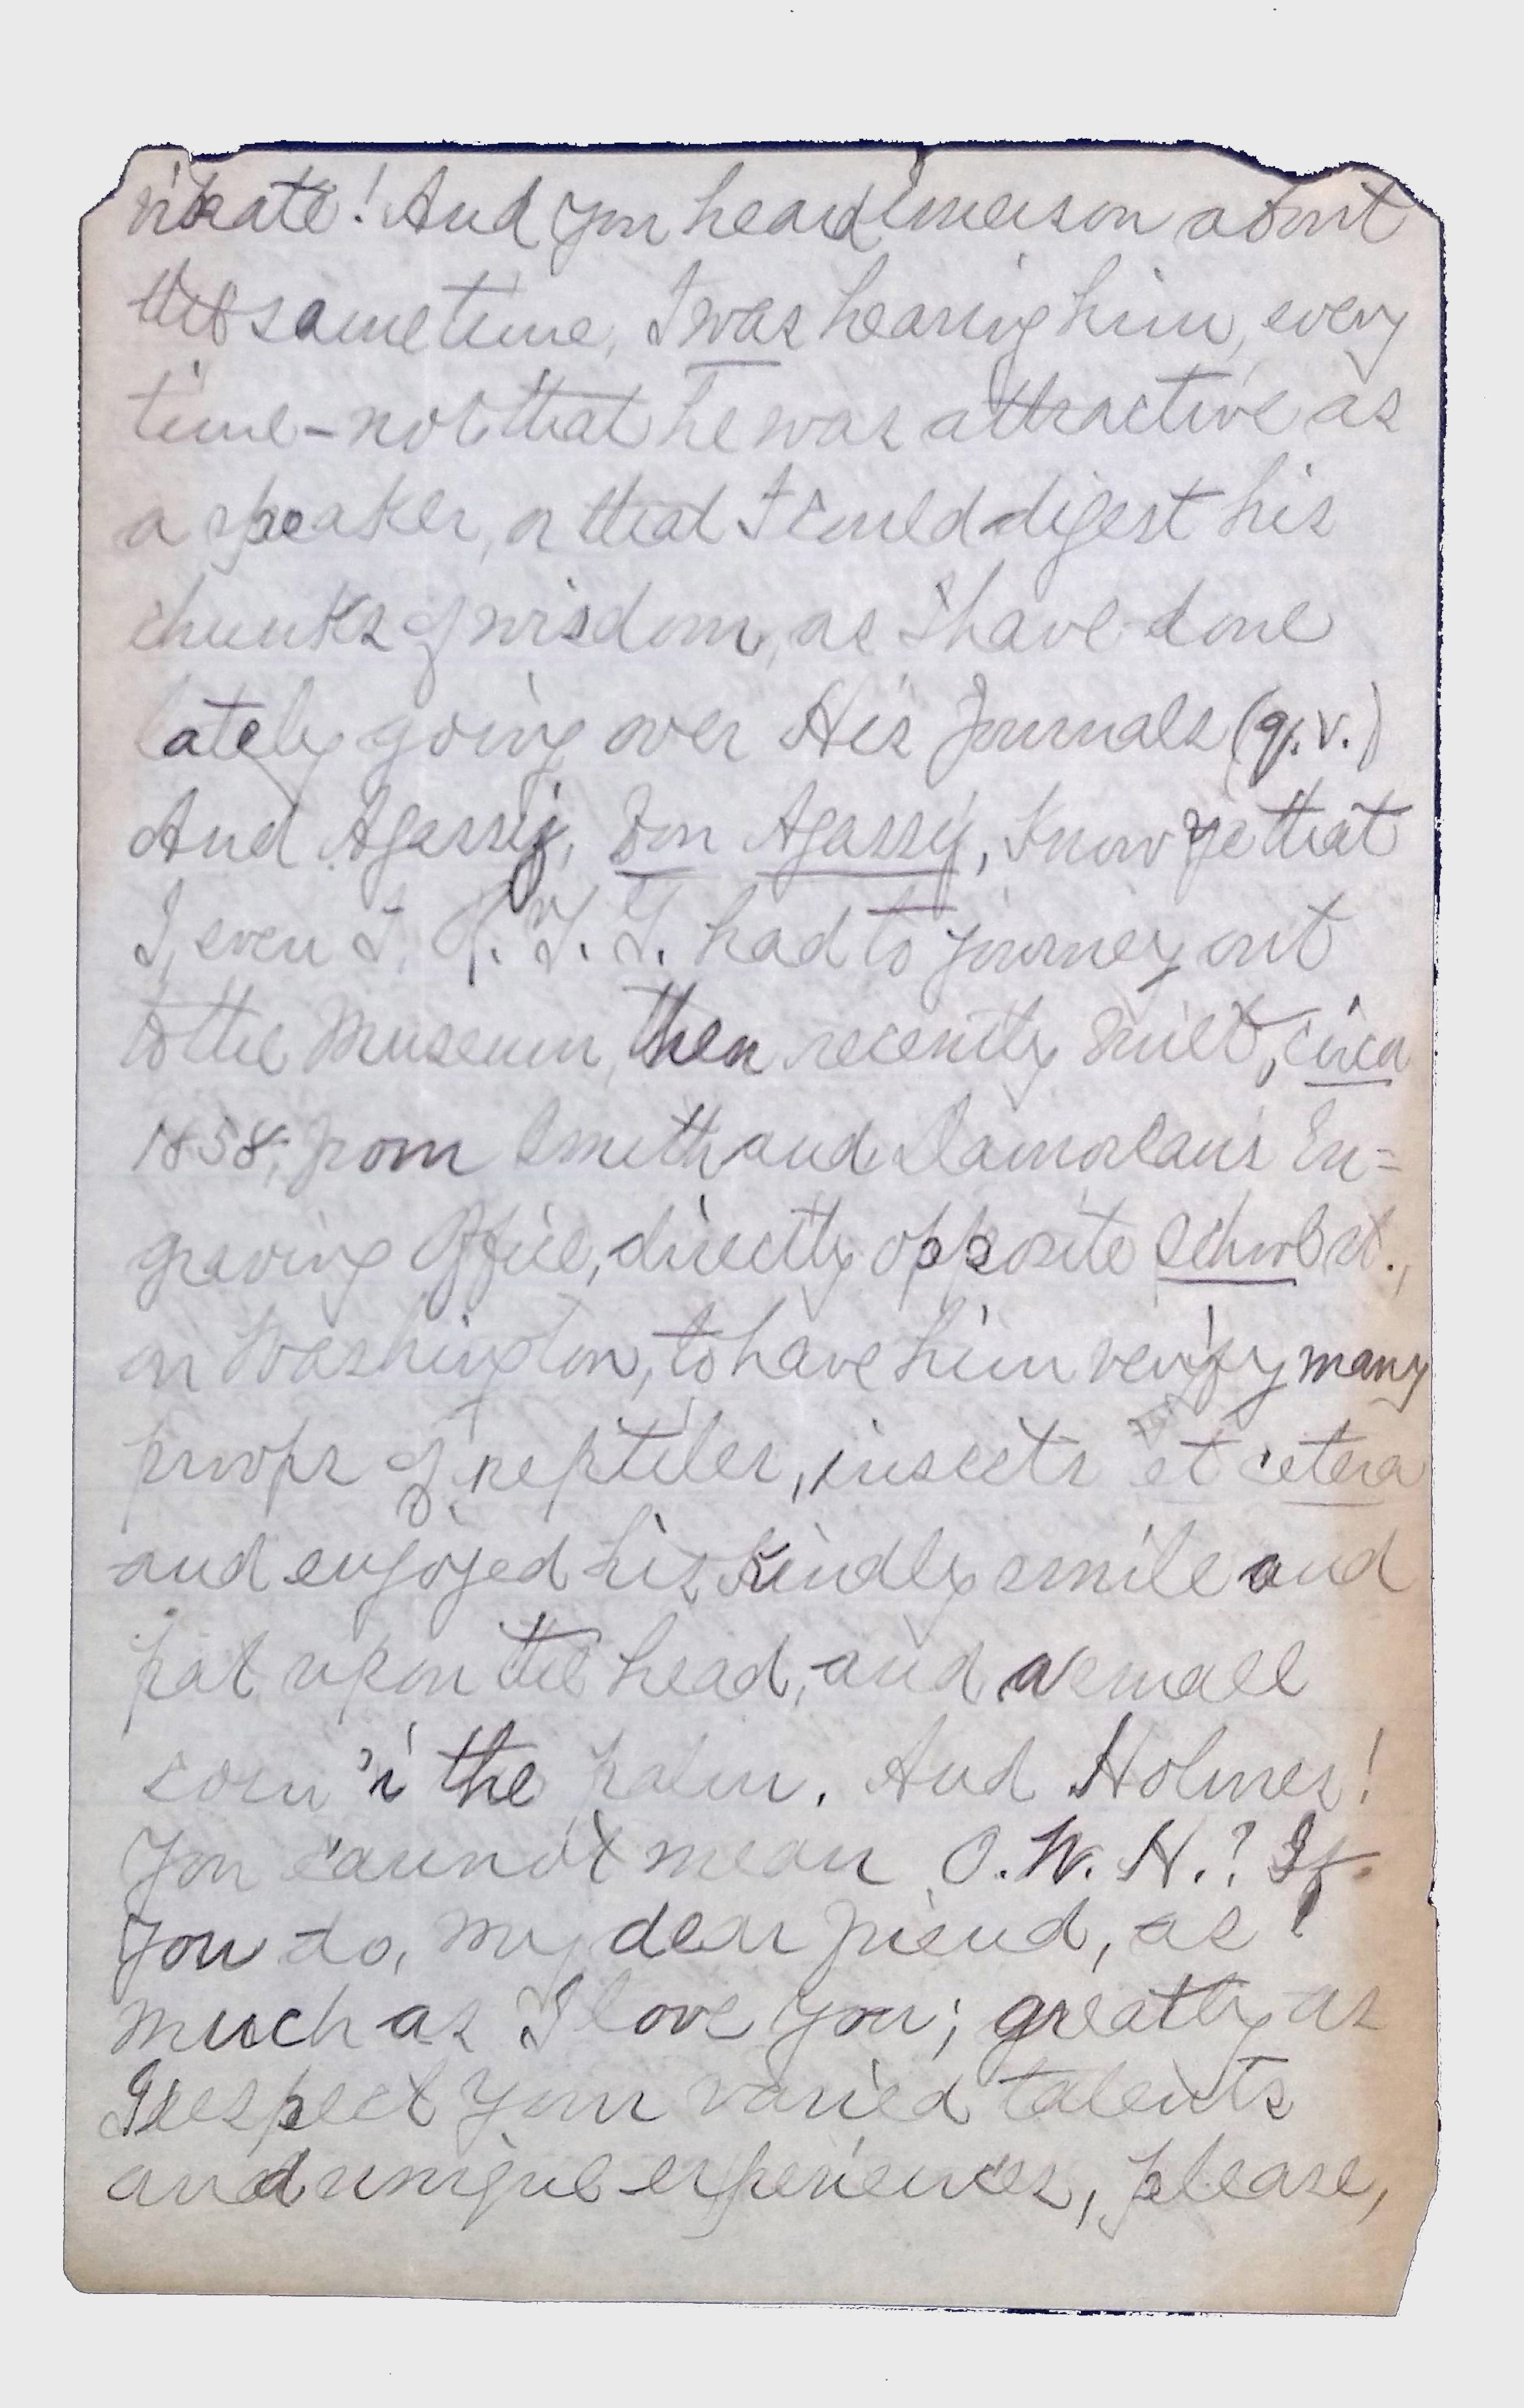 vibrate! And you heard Emerson about
the same time, I was hearing him, every
time - not that he was attractive as
a speaker, or that I could digest his
chunks of wisdom, as I have done
lately going over His Journals (q.v.)
And Agassiz, Don Agassiz, Know ye that
I, even I, T. had to journey out
to the Museum, then recently built, circa
1858, from Smith and En=
graving Office, directly opposite School st.,
on Washington, to have him verify many
proofs of reptiles, insects et cetera
and enjoyed his kindly smile and
pat upon the head, and a small
coin 'i the palm. And Holmes!
You cannot mean O. W. H.? If
you do, my dear friend, as
much as I love you; greatly as
I respect your varied talents
and unique experiences, please,